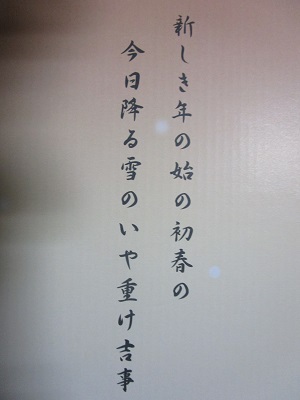 新しき年の始の初春の
今日降る雪のいや重け吉事